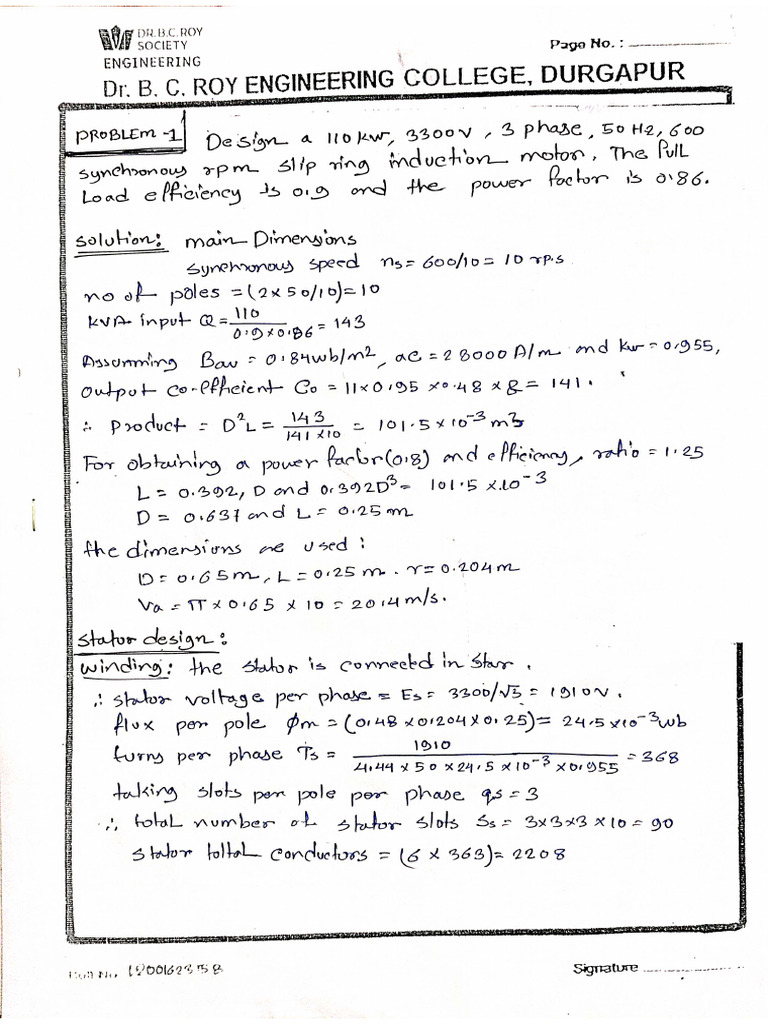 DR.B.C.ROY
SOCIETY
ENGINEERING
Page No. :
Dr. B. C. ROY ENGINEERING COLLEGE, DURGAPUR
PROBLEM-1 Design a 110kw, 3300v, 3 phase, 50 Hz, 600
synchronous rpm slip ring induction motor. The full
Load efficiency is 0.9 and the power factor is 0.86.
solution: main Dimensions
synchronous speed ns = 600/10 = 10 r.p.s
no of poles = (2×50/10) = 10
KVA input Q = 110/0.9×0.86 = 143
Assuming Bav = 0.84wb/m², ac = 28000 A/m and Kw = 0.955,
output co-efficient Co = 11×0.95×0.48×8 = 141.
∴ Product = D²L = 143/141×10 = 101.5×10⁻³ m³
For obtaining a power factor(0.8) and efficiency, ratio = 1.25
L = 0.392, D and 0.392D³ = 101.5×10⁻³
D = 0.637 and L = 0.25m
the dimensions are used:
D = 0.65m, L = 0.25m. r = 0.204m
Va = π×0.65×10 = 20.4m/s.
Stator design:
winding: the stator is connected in star.
∴ stator voltage per phase = Es = 3300/√3 = 1910v.
flux per pole ϕm = (0.48×0.204×0.25) = 24.5×10⁻³wb
turns per phase Ts = 1910/4.44×50×24.5×10⁻³×0.955 = 368
taking slots per pole per phase qs = 3
∴ total number of stator slots Ss = 3×3×3×10 = 90
stator toltal conductors = (6×363) = 2208
Roll No.
Signature